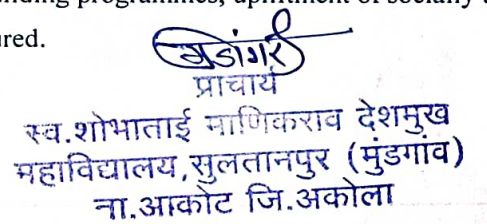 nding programmes, upliftment of socially
ured.
प्राचार्य
स्व.शोभाताई माणिकराव देशमुख
महाविद्यालय,सुलतानपुर (मुंडगांव)
ना.आकोट जि.अकोला